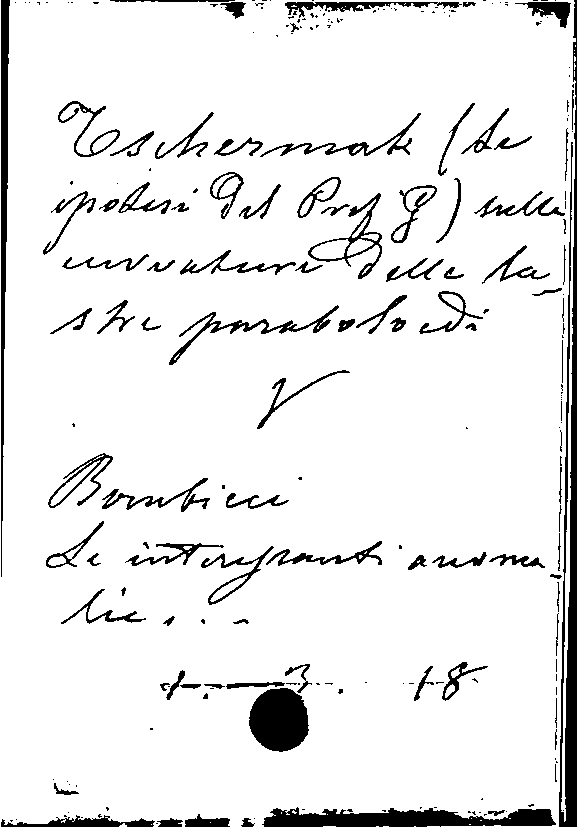 Tschermak (Le
ipotesi del Prof G) sulla
curvature delle la-
stre paraboloedi
V
Bombicci
Le interessanti anoma
lie . . .
1. — 3. 18